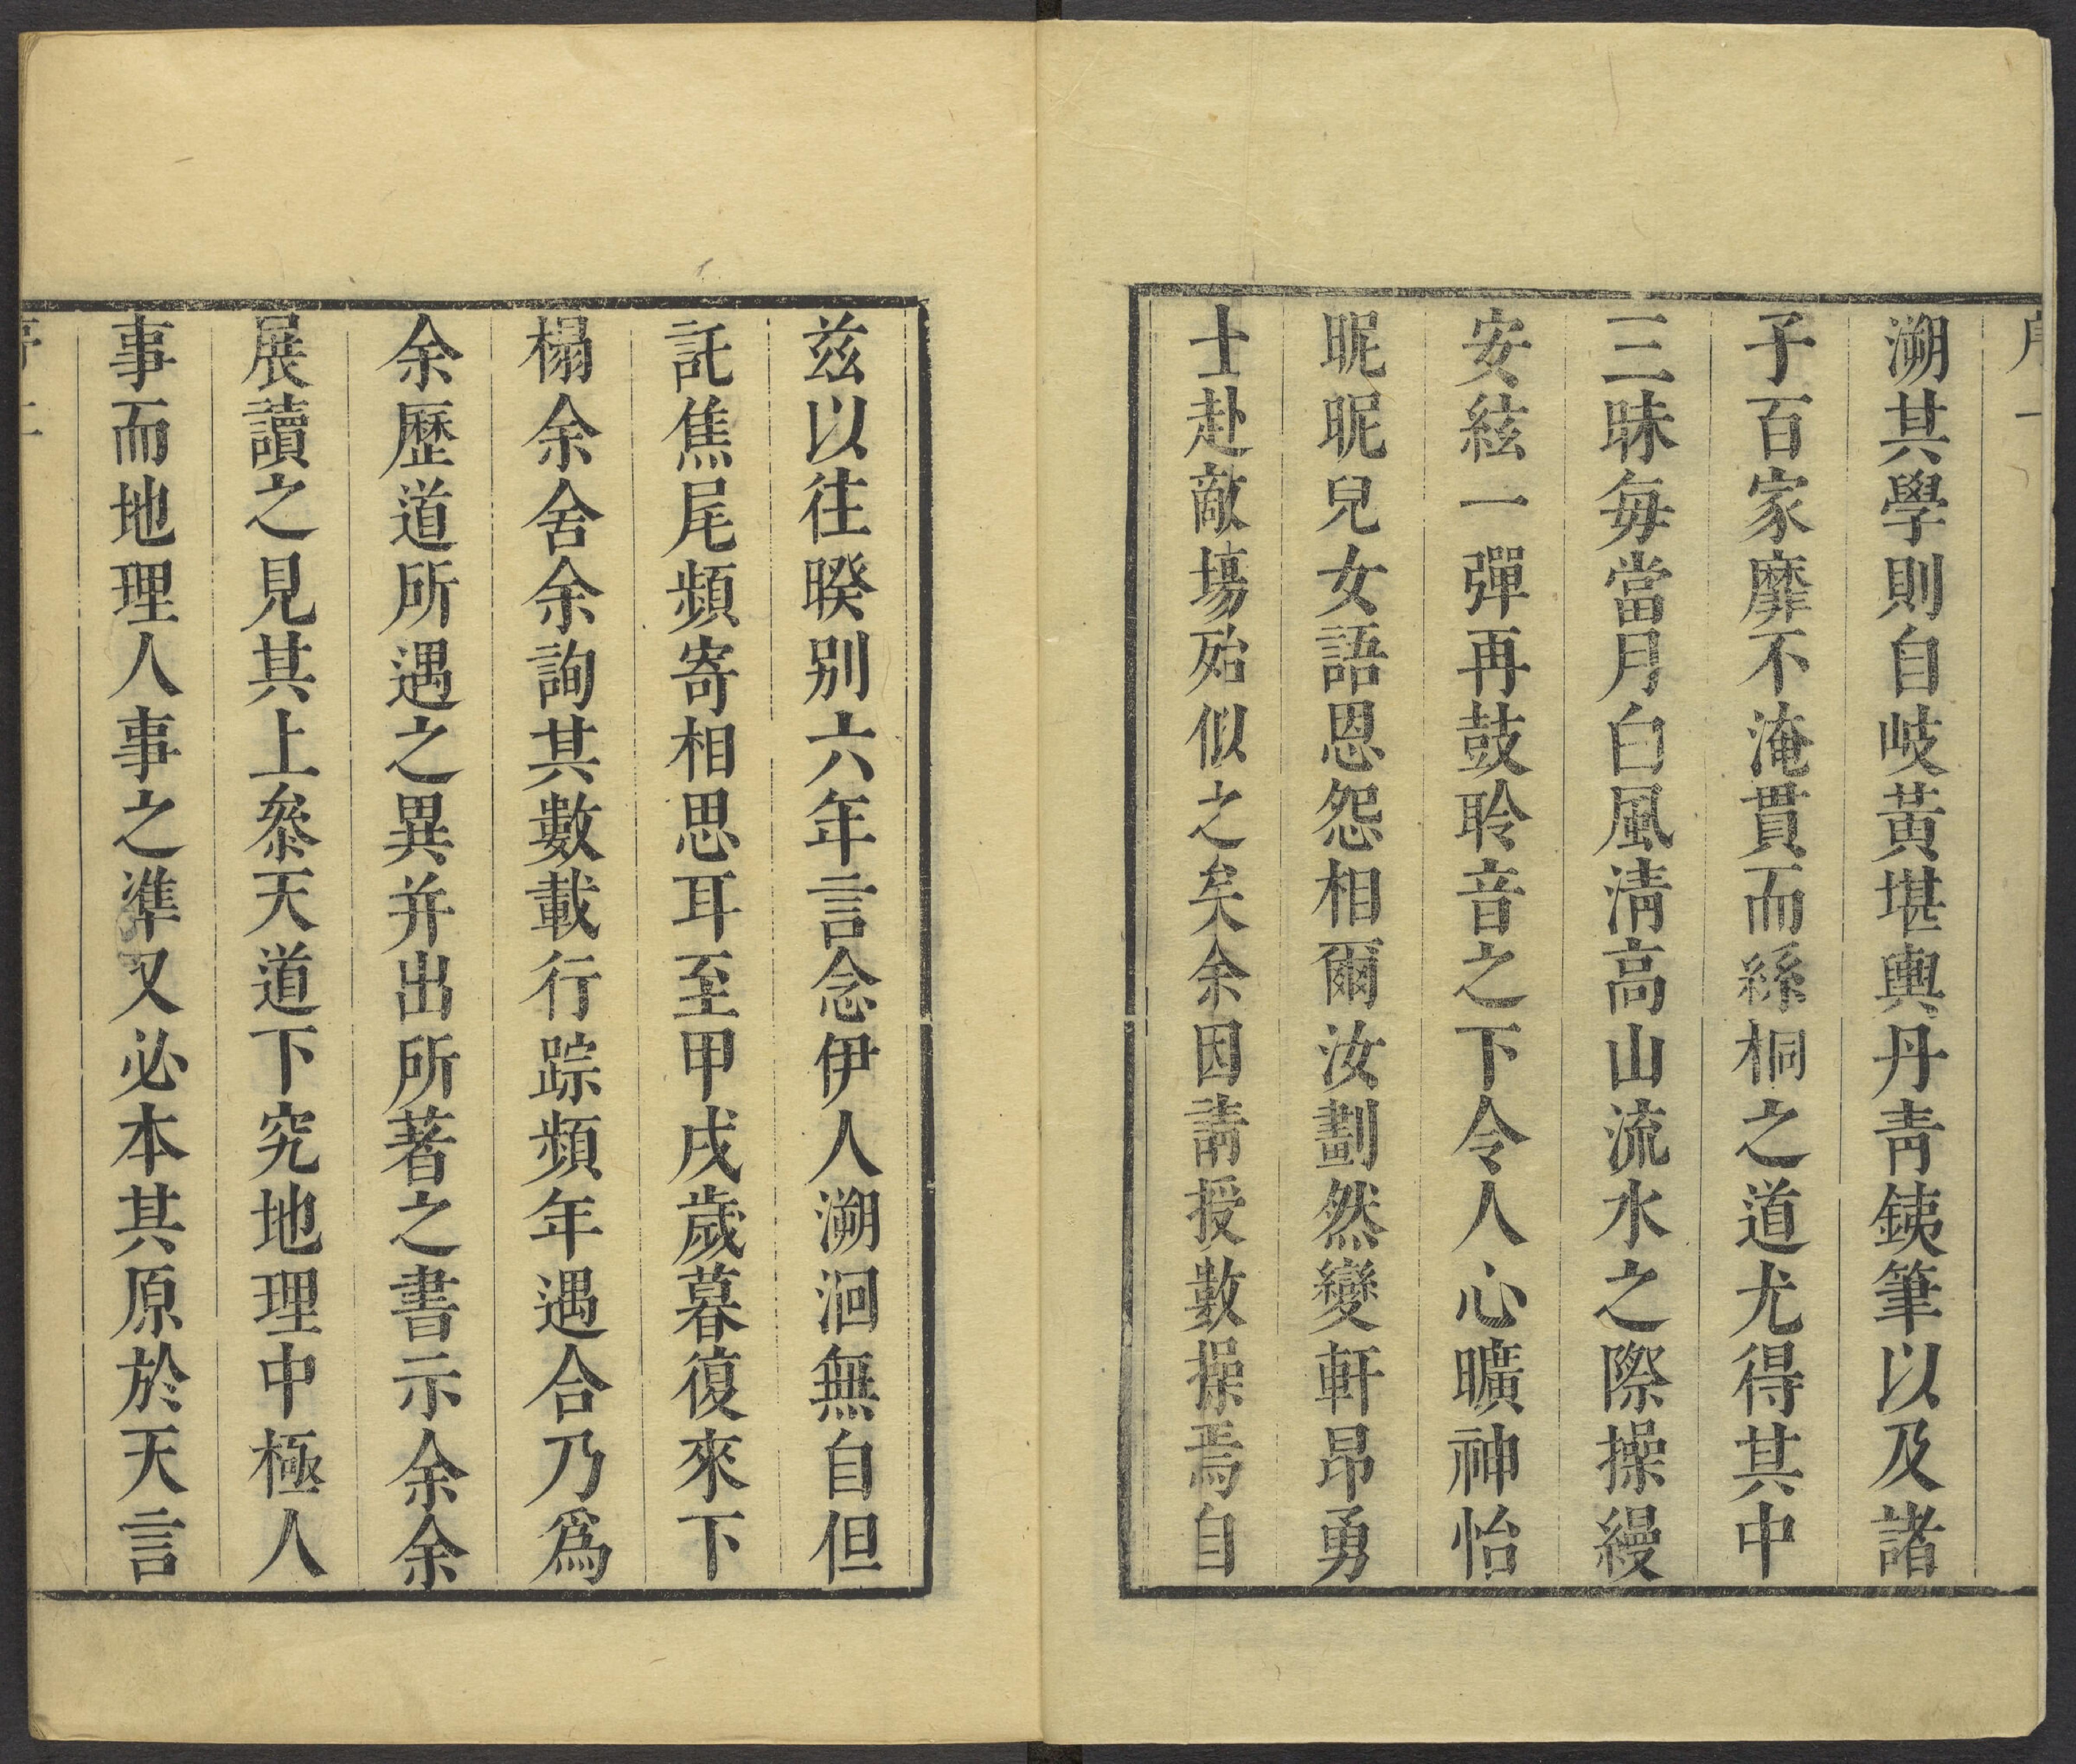 溯其學則自岐黃堪輿丹青鐵筆以及諸
子百家靡不淹貫而絲桐之道尤得其中
三昧每當月白風清高山流水之際操縵
安絃一彈再鼓聆音之下令人心曠神怡
昵昵兒女語恩怨相爾汝劃然變軒昂勇
士赴敵塲殆似之矣余因請授數操焉自
茲以往暌别六年言念伊人溯洄無自但
託焦尾頻寄相思耳至甲戌歲暮復來下
榻余舍余詢其數載行踪頻年遇合乃爲
余歷道所遇之異并出所著之書示余余
展讀之見其上叅天道下究地理中極人
事而地理人事之準又必本其原於天言